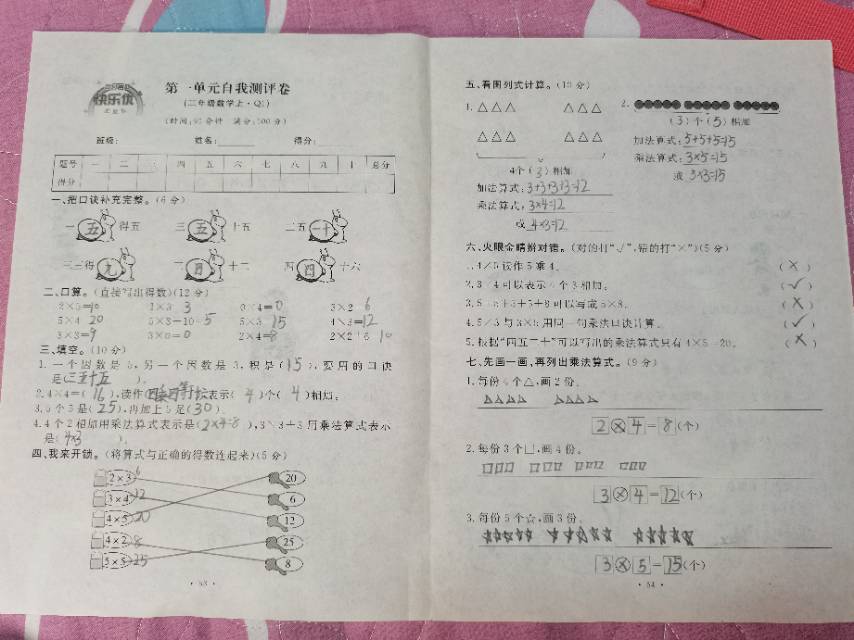 快乐优
第一单元自我测评卷
(二年级数学上·QD)
(时间:90分钟 满分:100分)
班级: 姓名: 得分:
题号 一 二 三 四 五 六 七 八 九 十 总分
得分
一、把口诀补充完整。(6分)
一五得五 三五十五 二五一十
三三得九 十二 四四十六
二、口算。(直接写出得数)(12分)
2×5=10 1×3 3 0×4=0 3×2 6
5×4 20 5×3-10=5 5×3 15 4×3=12
3×3=9 3×0=0 2×4=8 2×2+6 10
三、填空。(10分)
1.一个因数是5,另一个因数是3,积是(15),要用的口诀
是(三五十五)。
2.4×4=(16),读作 表示(4)个(4)相加。
3.5个5是(25),再加上5是(30)。
4.4个2相加用乘法算式表示是(2×4=8),3+3+3+3用乘法算式表示
是(4×3)。
四、我来开锁。(将算式与正确的得数连起来)(5分)
2×3 6 20
3×4 12 6
4×5 20 12
4×2 8 25
5×5 25 8
·53·
五、看图列式计算。(10分)
1.
4个(3)相加
加法算式:3+3+3+3=12
乘法算式:3×4=12
或 4×3=12
2.
(3)个(5)相加
加法算式:5+5+5=15
乘法算式:3×5=15
或 5×3=15
六、火眼金睛辨对错。(对的打“√”,错的打“×”)(5分)
1.4×5读作5乘4。 (×)
2.3×4可以表示4个3相加。 (√)
3.5+5+5+5+8可以写成5×8。 (×)
4.5×3与3×5用同一句乘法口诀计算。 (√)
5.根据“四五二十”可以写出的乘法算式只有4×5=20。 (×)
七、先画一画,再列出乘法算式。(9分)
1.每份4个△,画2份。
2×4=8(个)
2.每份3个□,画4份。
3×4=12(个)
3.每份5个☆,画3份。
3×5=15(个)
·54·